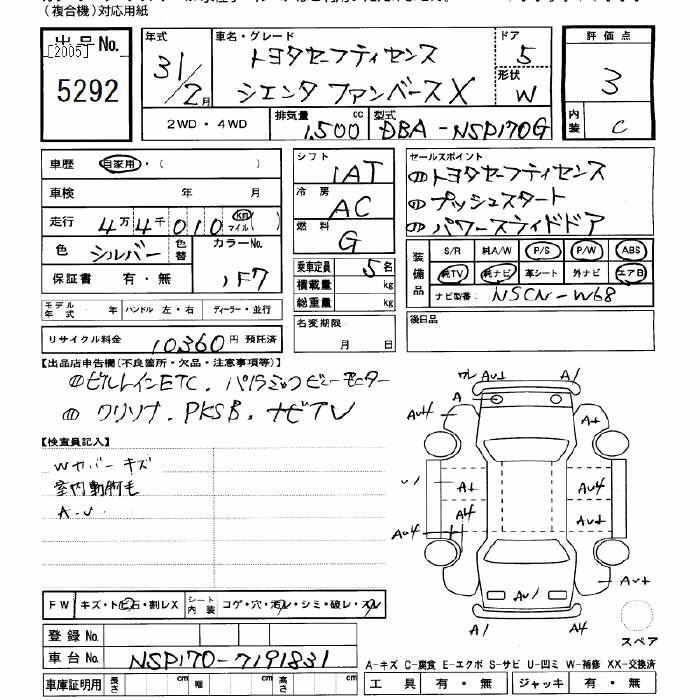 (複合機)対応用紙
出品No.
[2005]
5292
年式 31/2月
車名・グレード トヨタセーフティセンス
シエンタ ファンバース X
ドア 5
形状 W
評価点
3
内装 C
2WD・4WD
排気量 1,500 cc
型式 DBA-NSP170G
車歴 自家用・( )
車検 年 月
走行 4万4千010 km マイル( )
色 シルバー 色替 カラーNo. 1F7
保証書 有・無
モデル年式 年 ハンドル 左・右 ディーラー・並行
リサイクル料金 10360円 預託済
シフト IAT
冷房 AC
燃料 G
乗車定員 5名
積載量 kg
総重量 kg
名変期限
月 日
セールスポイント
トヨタセーフティセンス
プッシュスタート
パワースライドドア
装備品
S/R 純A/W P/S P/W ABS
純TV 純ナビ 革シート 外ナビ エアB
ナビ型番: NSCN-W68
後日品
【出品店申告欄(不良箇所・欠品・注意事項等)】
ビルトインETC. パノラミックビューモニター
クリソナ. PKSB. ナビTV
【検査員記入】
Wカバーキズ
室内動物毛
A・U
ワレ AU1 A1
A
AU4 A+
A+ AU4
A4
AU4
AU1
A1 A4
スペア
FW キズ・トビ石・割レX シート内装 コゲ・穴・汚レ・シミ・破レ・スレ
登録No.
車台No. NSP170-7191831
車庫証明用 長さ cm 幅 cm 高さ cm
A-キズ C-腐食 E-エクボ S-サビ U-凹ミ W-補修 XX-交換済
工具 有・無 ジャッキ 有・無